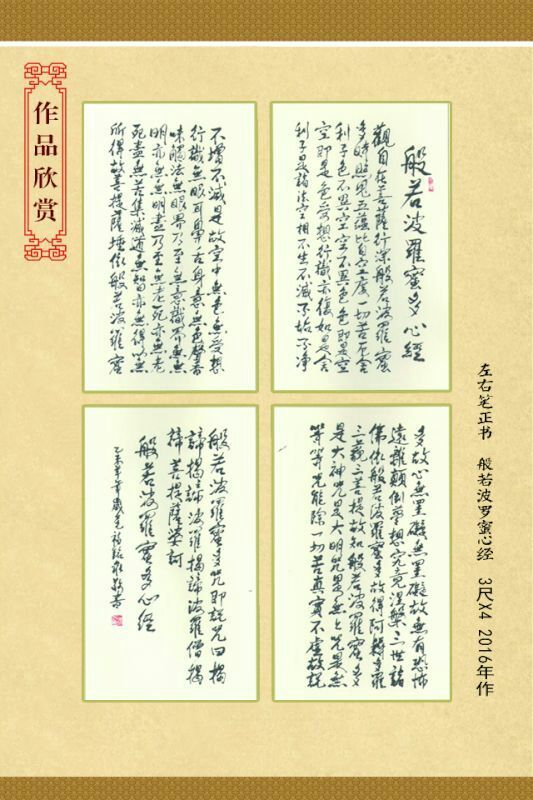 作品欣赏
般若波羅蜜多心經
觀自在菩薩行深般若波羅蜜
多時照見五蘊皆空度一切苦厄舍
利子色不異空空不異色色即是空
空即是色受想行識亦復如是舍
利子是諸法空相不生不滅不垢不淨
不增不減是故空中無色無受想
行識無眼耳鼻舌身意無色聲香
味觸法無眼界乃至無意識界無無
明亦無無明盡乃至無老死亦無老
死盡無苦集滅道無智亦無得以無
所得故菩提薩埵依般若波羅蜜
多故心無罣礙無罣礙故無有恐怖
遠離顛倒夢想究竟涅槃三世諸
佛依般若波羅蜜多故得阿耨多羅
三藐三菩提故知般若波羅蜜多
是大神咒是大明咒是無上咒是無
等等咒能除一切苦真實不虛故說
般若波羅蜜多咒即說咒曰揭
諦揭諦波羅揭諦波羅僧揭
諦菩提薩婆訶
般若波羅蜜多心經
乙未年
左右笔正书 般若波罗蜜心经 3尺X4 2016年作